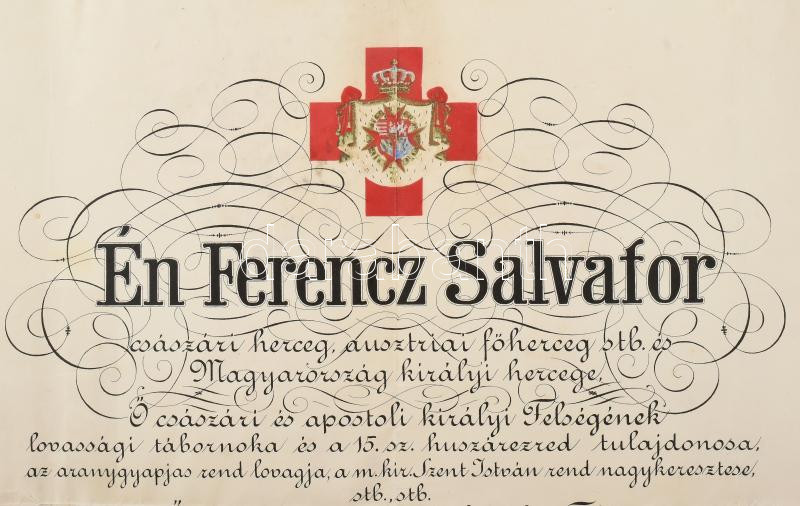 Én Ferencz Salvator
császári herceg, ausztriai főherceg stb. és
Magyarország királyi hercege,
Ő császári és apostoli királyi Felségének
lovassági tábornoka és a 15. sz. huszárezred tulajdonosa,
az aranygyapjas rend lovagja, a m. kir. Szent István rend nagykeresztese,
stb., stb.